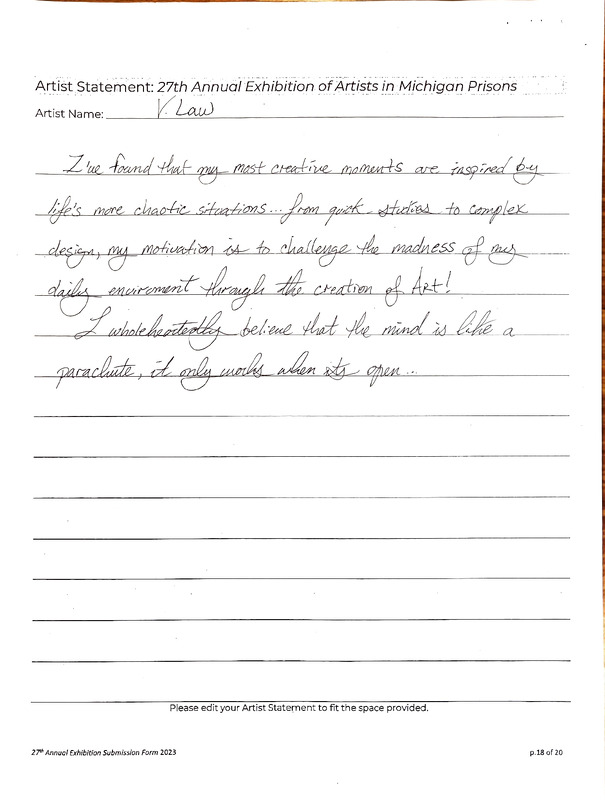 Artist Statement: 27th Annual Exhibition of Artists in Michigan Prisons
Artist Name: V. Law
I've found that my most creative moments are inspired by
life's more chaotic situations... from quick studies to complex
design, my motivation is to challenge the madness of my
daily enviroment through the creation of Art!
I wholeheartedly believe that the mind is like a
parachute, it only works when its open...
Please edit your Artist Statement to fit the space provided.
27th Annual Exhibition Submission Form 2023
p.18 of 20